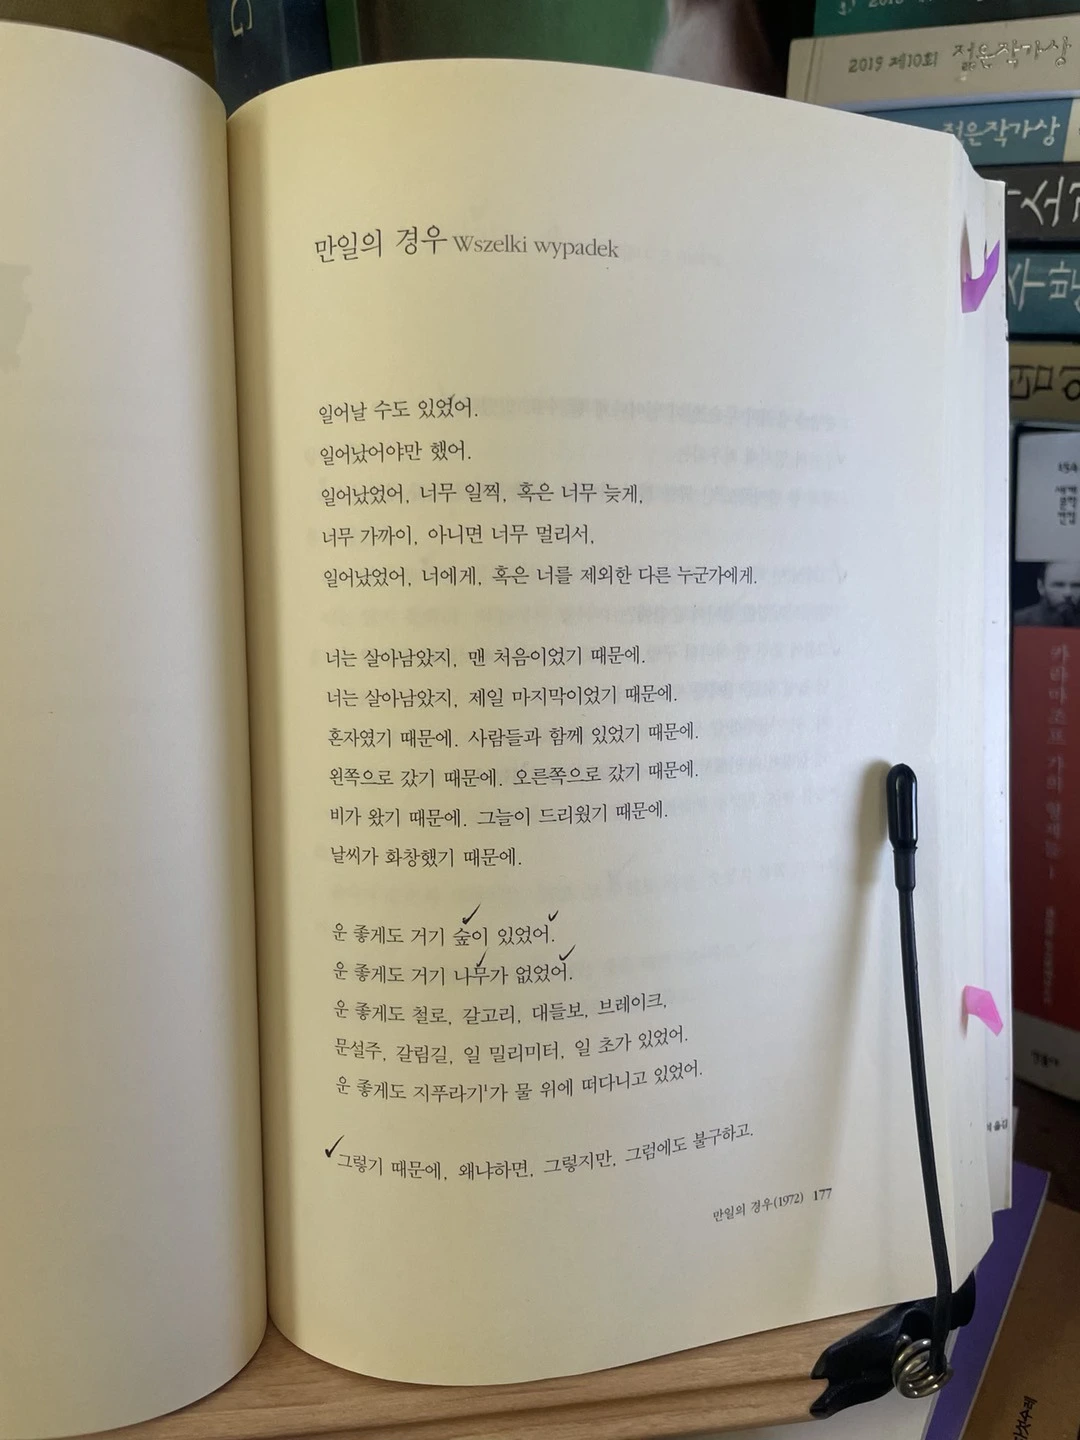 만일의 경우 Wszelki wypadek
일어날 수도 있었어.
일어났어야만 했어.
일어났었어, 너무 일찍, 혹은 너무 늦게,
너무 가까이, 아니면 너무 멀리서,
일어났었어, 너에게, 혹은 너를 제외한 다른 누군가에게.
너는 살아남았지, 맨 처음이었기 때문에.
너는 살아남았지, 제일 마지막이었기 때문에.
혼자였기 때문에. 사람들과 함께 있었기 때문에.
왼쪽으로 갔기 때문에. 오른쪽으로 갔기 때문에.
비가 왔기 때문에. 그늘이 드리웠기 때문에.
날씨가 화창했기 때문에.
운 좋게도 거기 숲이 있었어.
운 좋게도 거기 나무가 없었어.
운 좋게도 철로, 갈고리, 대들보, 브레이크,
문설주, 갈림길, 일 밀리미터, 일 초가 있었어.
운 좋게도 지푸라기¹가 물 위에 떠다니고 있었어.
그렇기 때문에, 왜냐하면, 그렇지만, 그럼에도 불구하고.
만일의 경우(1972) 177
2019 제10회 젊은작가상
젊은작가상
수반
카라마조프 가의 형제들 1
민음사